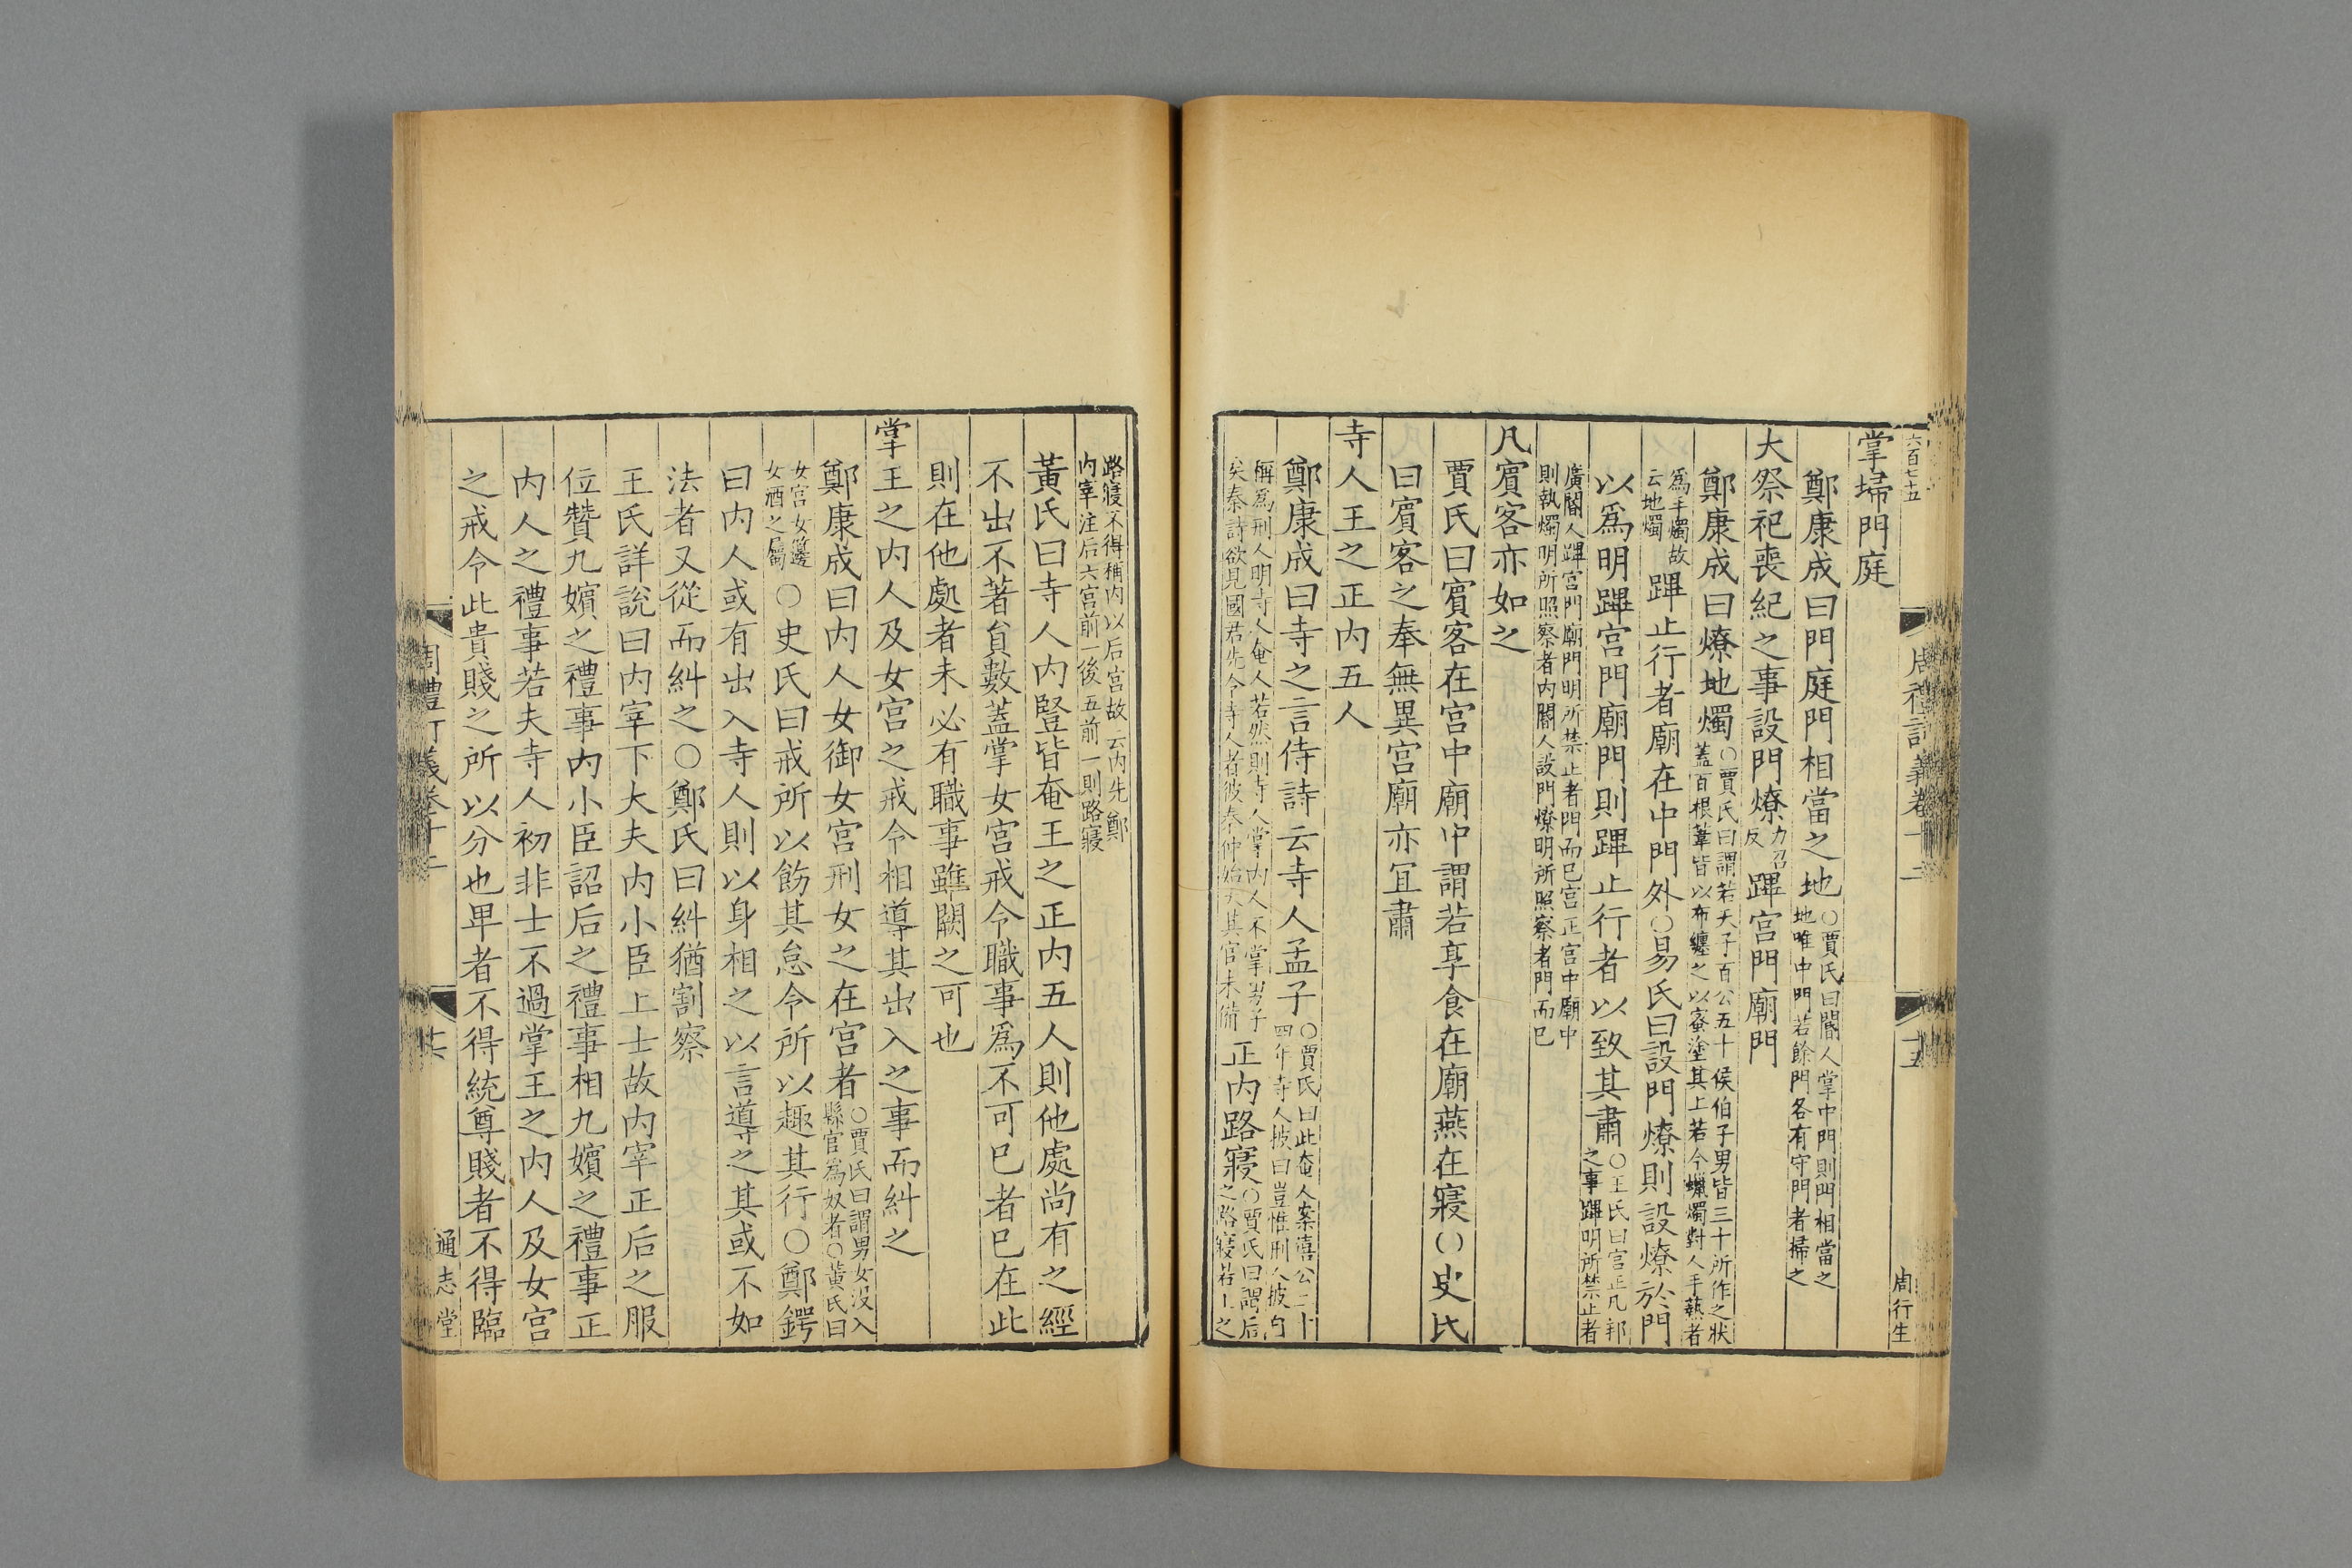 六百七十五
周禮訂義卷十二
十五
周行生
掌埽門庭
鄭康成曰門庭門相當之地○賈氏曰閽人掌中門則門相當之地唯中門若餘門各有守門者掃之
大祭祀喪紀之事設門燎力召反蹕宮門廟門
鄭康成曰燎地燭○賈氏曰謂若天子百公五十侯伯子男皆三十所作之狀蓋百根葦皆以布纏之以蜜塗其上若今蠟燭對人手執者
爲手燭故云地燭蹕止行者廟在中門外○易氏曰設門燎則設燎於門
以爲明蹕宮門廟門則蹕止行者以致其肅○王氏曰宮正凡邦之事蹕明所禁止者
廣閽人蹕宮門廟門明所禁止者門而已宮正宮中廟中則執燭明所照察者內閽人設門燎明所照察者門而已
凡賓客亦如之
賈氏曰賓客在宮中廟中謂若享食在廟燕在寢○史氏
曰賓客之奉無異宮廟亦宜肅
寺人王之正內五人
鄭康成曰寺之言侍詩云寺人孟子○賈氏曰此奄人案僖公二十四年寺人披曰豈惟刑人披自
稱爲刑人明寺人奄人若然則寺人掌內人不掌男子矣秦詩欲見國君先令寺人者彼秦仲始大其官未備正內路寢○賈氏曰謂后之路寢若王之
路寢不得稱內以后宮故云內先鄭內宰注后六宮前一後五前一則路寢
黃氏曰寺人內豎皆奄王之正內五人則他處尚有之經
不出不著員數蓋掌女宮戒令職事爲不可已者已在此
則在他處者未必有職事雖闕之可也
掌王之內人及女宮之戒令相導其出入之事而糾之
鄭康成曰內人女御女宮刑女之在宮者○賈氏曰謂男女沒入縣官爲奴者○黃氏曰
女宮女籩女酒之屬○史氏曰戒所以飭其怠令所以趣其行○鄭鍔
曰內人或有出入寺人則以身相之以言導之其或不如
法者又從而糾之○鄭氏曰糾猶割察
王氏詳說曰內宰下大夫內小臣上士故內宰正后之服
位贊九嬪之禮事內小臣詔后之禮事相九嬪之禮事正
內人之禮事若夫寺人初非士不過掌王之內人及女宮
之戒令此貴賤之所以分也卑者不得統尊賤者不得臨
周禮訂義卷十二
十六
通志堂